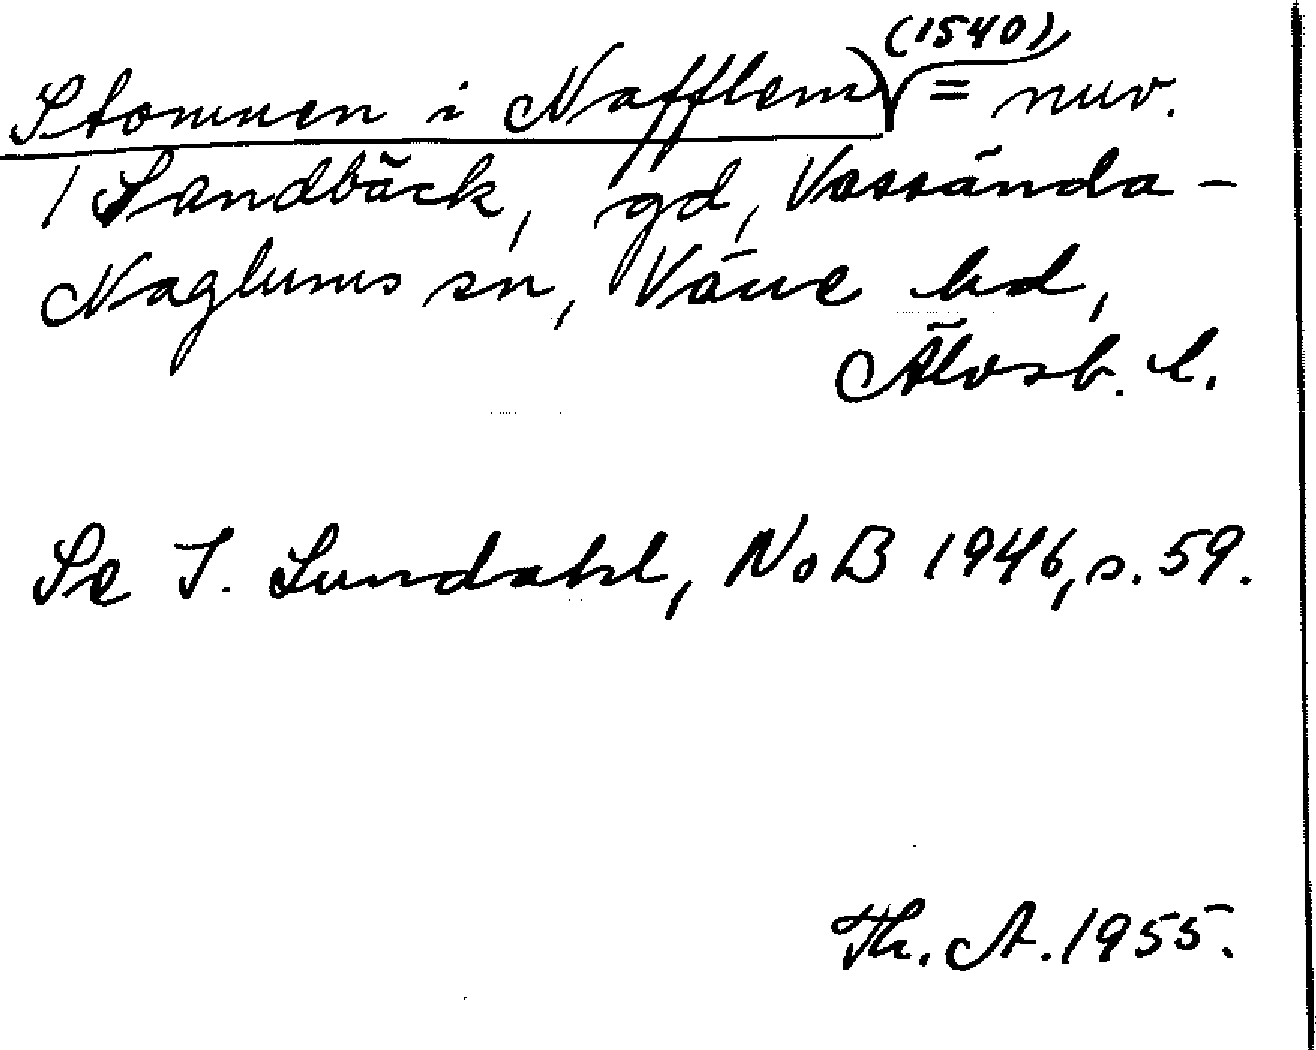 Stommen i Nafflem) (1540), = nuv.
/ Sandbäck, gd, Vassända-
Naglums sn, Väne hd,
Älvsb. l.
Se I. Lundahl, NoB 1946, s. 59.
Th. A. 1955.